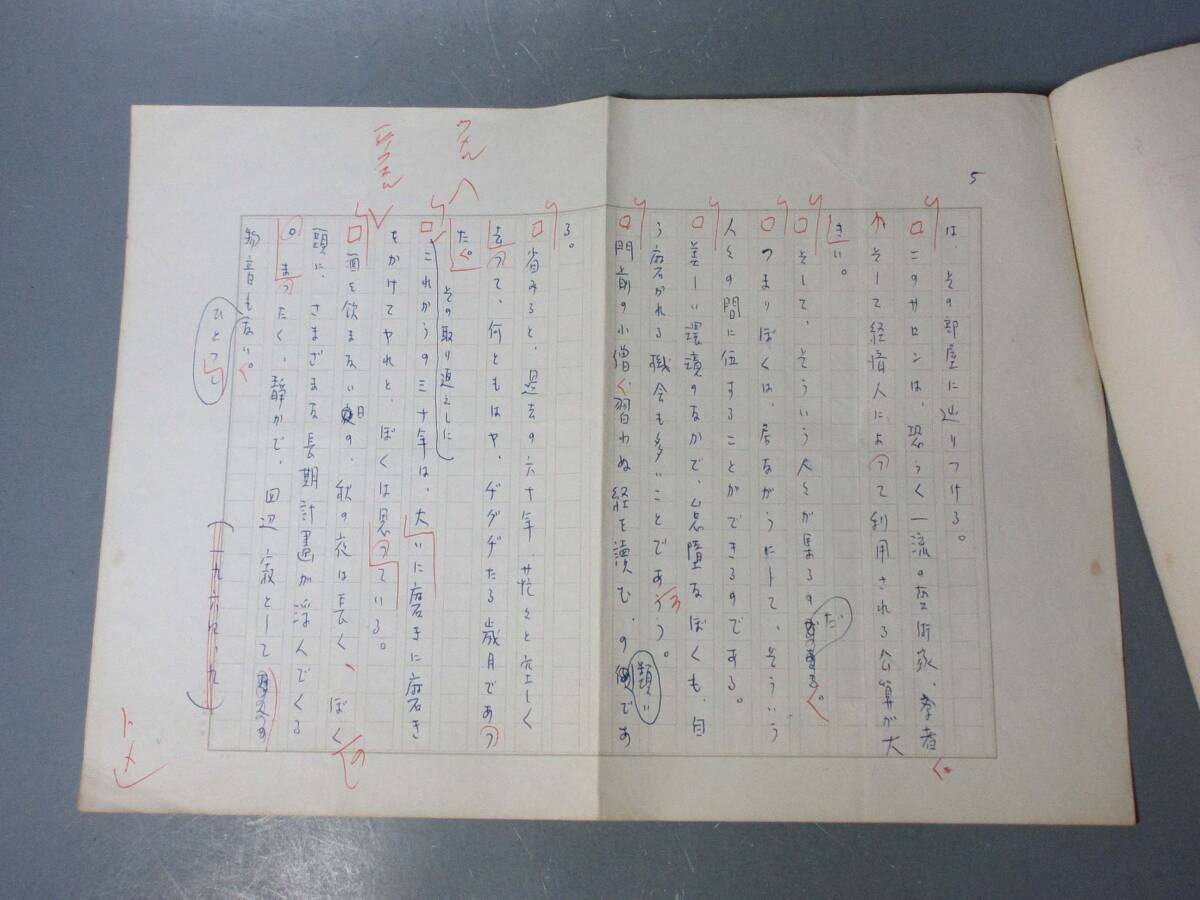 5
は、その部屋に辿りつける。
このサロンは、恐らく一流の芸術家、学者
そして経済人によって利用される公算が大
きい。
そして、そういう人々が集まるのだ。
つまりぼくは、居ながらにして、そういう
人々の間に伍することができるのである。
差しい環境のなかで、怠惰なぼくも、自
ら磨かれる機会も多いことであろう。
門前の小僧、習わぬ経を読む、の類いであ
る。
省みると、過去の六十年、茫々と空しく
去って、何ともはや、グダグダたる歳月であっ
た。
その取り返えしに
これからの三十年は、大いに磨きに磨き
をかけてやれと、ぼくは思っている。
酒を飲まない日の、秋の夜は長く、ぼくの
頭に、さまざまな長期計画が浮んでくる
まったく、静かで、四辺寂として
物音もない。
ひとつ
トメ